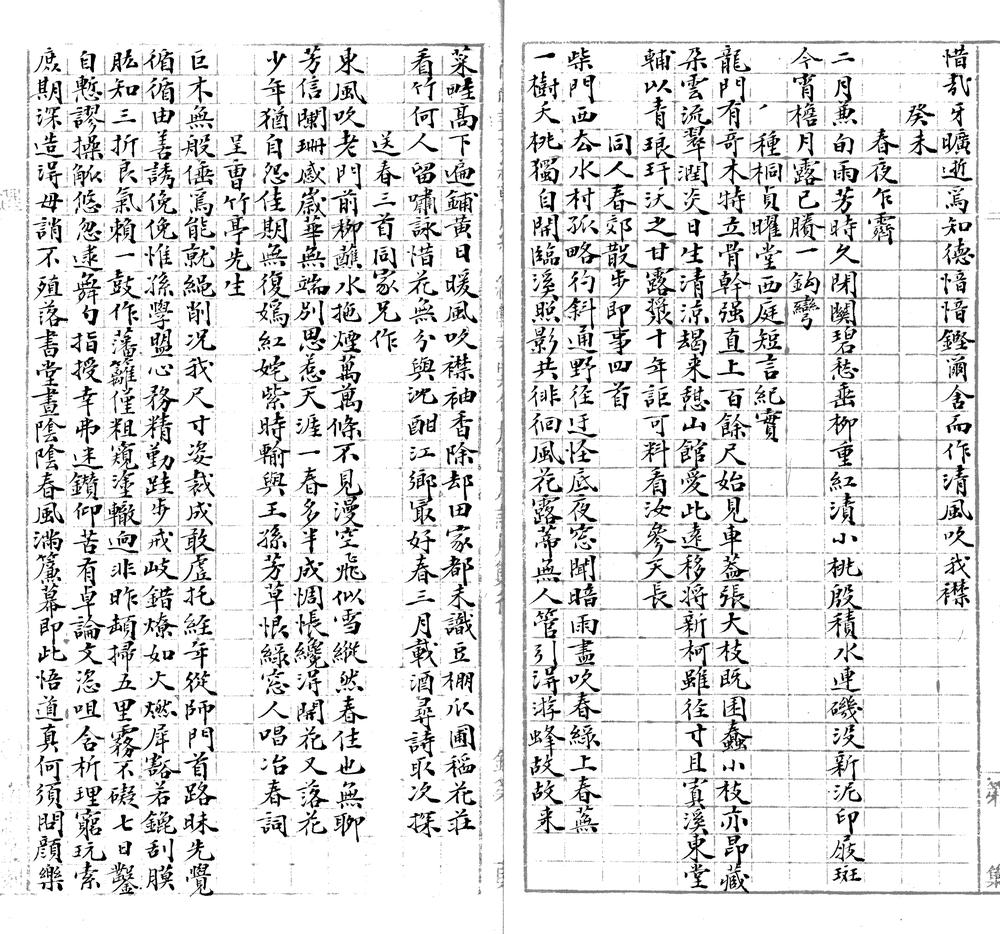 惜哉牙曠逝焉知德愔愔鏗爾舍而作清風吹我襟
癸未
春夜乍霽
二月兼旬雨芳時久閉關碧愁垂柳重紅漬小桃殷積水連磯没新泥印屐斑
今宵檐月露已勝一鈎彎
種桐貞曜堂西庭短言紀實
龍門有奇木特立骨幹强直上百餘尺始見車蓋張大枝既困蠡小枝亦昂藏
朶雲流翠潤炎日生清涼朅来憩山館愛此遠移將新柯雖徑寸且寘溪東堂
輔以青琅玕沃之甘露漿十年詎可料看汝參天長
同人春郊散步即事四首
柴門西去水村孤略彴斜通野徑迂怪底夜窓聞暗雨盡吹春緑上春蕪
一樹夭桃獨自開臨溪照影共徘徊風花露蒂無人管引得游蜂故故来
菜畦高下遍鋪黄日暖風吹襟袖香除却田家都未識豆棚瓜圃稻花莊
看竹何人留嘯詠惜花無分與沈酣江鄉寂好春三月載酒尋詩取次探
送春三首同家兄作
東風吹老門前柳蘸水拖煙萬萬條不見漫空飛似雪縱然春住也無聊
芳信闌珊感歲華無端别思惹天涯一春多半成惆悵纔得開花又落花
少年猶自怨佳期無復嫣紅姹紫時輸與王孫芳草恨緑窓人唱冶春詞
呈曹竹亭先生
巨木無般倕焉能就繩削况我尺寸姿裁成敢虚托經年從師門首路昧先覺
循循由善誘俛俛惟孫學盟心務精勤跬步戒岐錯燎如火燃犀豁若鎞刮膜
肱知三折良氣賴一鼓作藩籬僅粗窺塗轍迥非昨頓掃五里霧不礙七日鑿
自慙謬操觚悠忽逮舞勺指授幸弗迷鑽仰苦有卓論文恣咀含析理窮玩索
庶期深造得毋誚不殖落書堂晝陰陰春風滿簾幕即此悟道真何須問顔樂